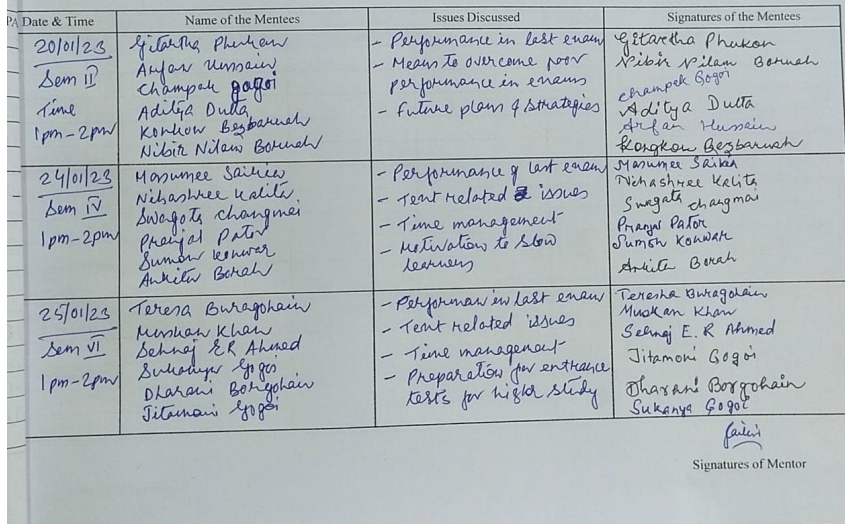 PA Date & Time Name of the Mentees Issues Discussed Signatures of the Mentees
20/01/23
Sem II
Time
1pm-2pm
Gitartha Phukan
Arfan Hussain
Champak gogoi
Aditya Dutta
Konkon Bezbaruah
Nibir Nilam Boruah
- Performance in last exam
- Means to overcome poor
performance in exams
- Future plans & strategies
Gitartha Phukon
Nibir Nilam Boruah
Champak Gogoi
Aditya Dutta
Arfan Hussain
Kongkon Bezbaruah
24/01/23
Sem IV
1pm-2pm
Masumee Saikia
Nihashree Kalita
Swagota changmai
Pranjal Pator
Sumon Konwar
Ankita Borah
- Performance of last exam
- Tent related issues
- Time management
- Motivation to slow
learners
Masumee Saikia
Nihashree Kalita
Swagata changmai
Pranjal Pator
Sumon Konwar
Ankita Borah
25/01/23
Sem VI
1pm-2pm
Teresa Buragohain
Muskan Khan
Sehnaj ER Ahmed
Sukanya Gogoi
Dharani Borgohain
Jitamoni Gogoi
- Performan in last exam
- Tent related issues
- Time management
- Preparation for entrance
tests for higher study
Teresha Buragohain
Muskan Khan
Sehnaj E. R Ahmed
Jitamoni Gogoi
Dharani Borgohain
Sukanya Gogoi
Signatures of Mentor